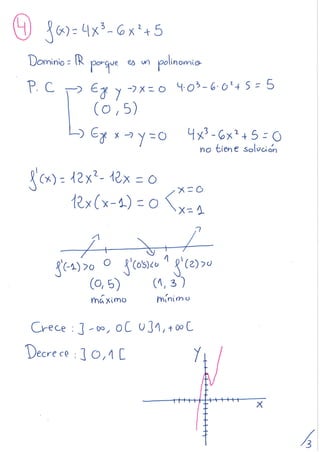 4) f(x) = 4x³ - 6x² + 5
Dominio = ℝ porque es un polinomio
P. C → Eje y → x = 0 4·0³ - 6·0² + 5 = 5
(0, 5)
→ Eje x → y = 0 4x³ - 6x² + 5 = 0
no tiene solución
f'(x) = 12x² - 12x = 0
12x(x-1) = 0 x = 0
x = 1
f'(-1) > 0 0 f'(0'5) < 0 1 f'(2) > 0
(0, 5) (1, 3)
máximo mínimo
Crece : ]-∞, 0[ ∪ ]1, +∞[
Decrece : ]0, 1[
y
x
/3